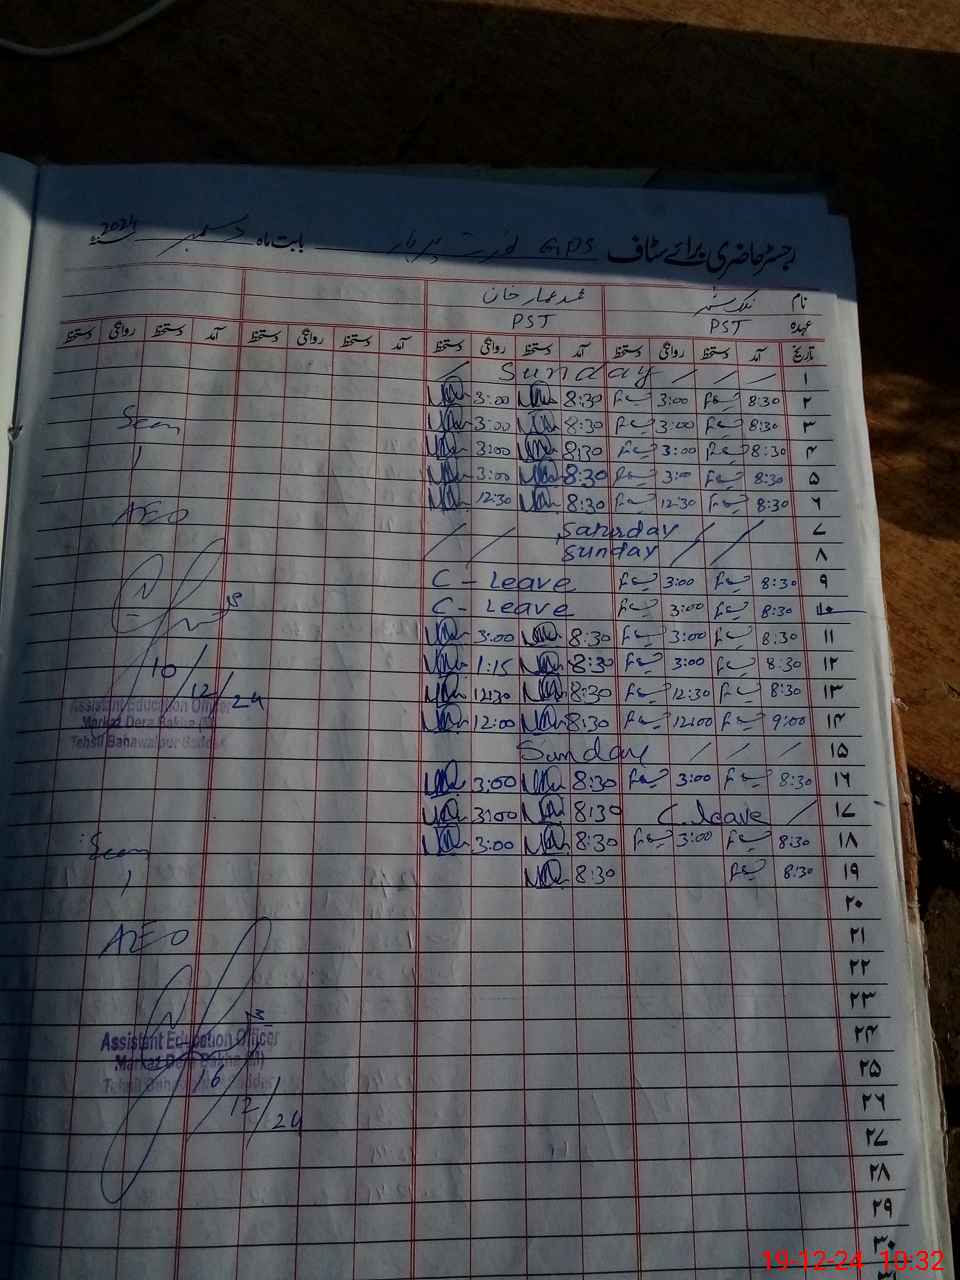 رجسٹر حاضری برائے سٹاف GPS بابت ماہ دسمبر 2024
نام محمد عمار خان
عہدہ PST PST
تاریخ آمد دستخط روانگی دستخط آمد دستخط روانگی دستخط آمد دستخط روانگی دستخط آمد دستخط روانگی دستخط
۱ Sunday
۲ 8:30 3:00 8:30 3:00
۳ 8:30 3:00 8:30 3:00
۴ 8:30 3:00 8:30 3:00
۵ 8:30 3:00 8:30 3:00
۶ 8:30 12:30 8:30 12:30
۷ Saturday
۸ Sunday
۹ 8:30 3:00 C-Leave
۱۰ 8:30 3:00 C-Leave
۱۱ 8:30 3:00 8:30 3:00
۱۲ 8:30 3:00 8:30 1:15
۱۳ 8:30 12:30 8:30 12:30
۱۴ 9:00 12:00 8:30 12:00
۱۵ Sunday
۱۶ 8:30 3:00 8:30 3:00
۱۷ C.leave 8:30 3:00
۱۸ 8:30 3:00 8:30 3:00
۱۹ 8:30 8:30
۲۰
۲۱
۲۲
۲۳
۲۴
۲۵
۲۶
۲۷
۲۸
۲۹
۳۰
Seen
AEO
10/12/24
Assistant Education Officer
Markaz Dera Bakha (M)
Tehsil Bahawalpur Saddar
Seen
AEO
Assistant Education Officer
Markaz Dera Bakha (M)
Tehsil Bahawalpur Saddar
16/12/24
19-12-24 10:32